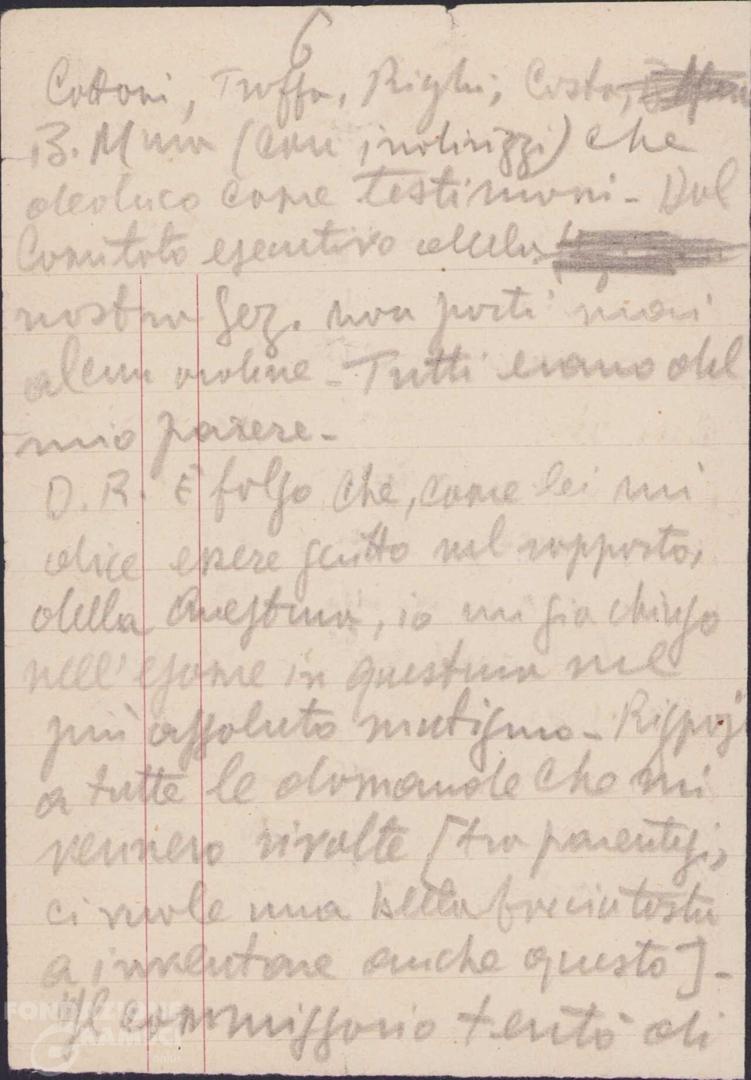 6
Cottoni, Troffa, Righi, Costa,
B. Mura (con indirizzi) che
deduco come testimoni - Dal
Comitato esecutivo della
nostra Sez. non partì mai
alcun ordine - Tutti erano del
mio parere -
D. R. È falso che, come lei mi
dice essere scritto nel rapporto,
della Questura, io mi sia chiuso
nell'esame in questura nel
più assoluto mutismo - Risposi
a tutte le domande che mi
vennero rivolte [tra parentesi,
ci vuole una bella facciatosta
a inventare anche questo] -
Il commissario tentò di
FONDAZIONE
RAMICI
onlus